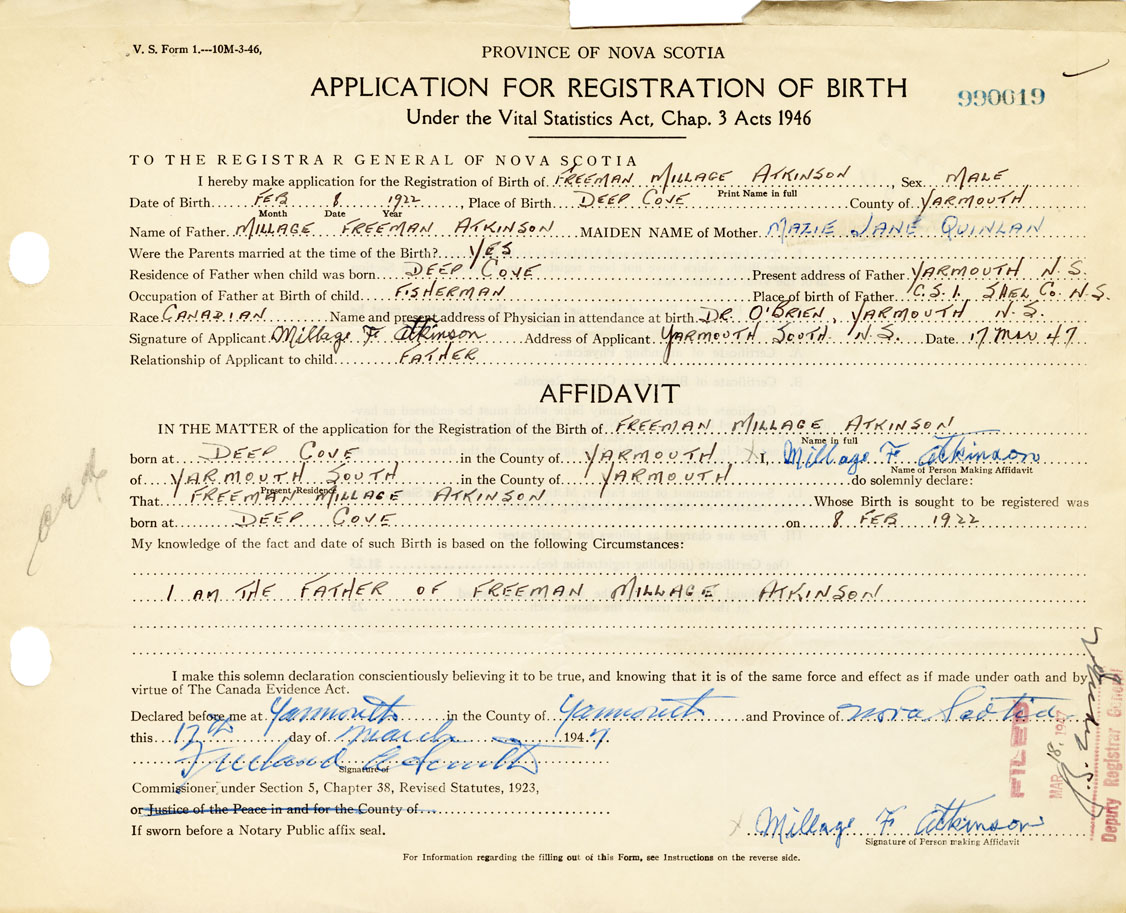 V. S. Form 1.---10M-3-46,
PROVINCE OF NOVA SCOTIA
APPLICATION FOR REGISTRATION OF BIRTH
990019
Under the Vital Statistics Act, Chap. 3 Acts 1946
TO THE REGISTRAR GENERAL OF NOVA SCOTIA
I hereby make application for the Registration of Birth of FREEMAN MILLAGE ATKINSON, Sex MALE
Print Name in full
Date of Birth FEB 8 1922, Place of Birth DEEP COVE County of YARMOUTH
Month Date Year
Name of Father MILLAGE FREEMAN ATKINSON MAIDEN NAME of Mother MAZIE JANE QUINLAN
Were the Parents married at the time of the Birth? YES
Residence of Father when child was born DEEP COVE Present address of Father YARMOUTH N.S.
Occupation of Father at Birth of child FISHERMAN Place of birth of Father C.S.I. SHEL CO. N.S.
Race CANADIAN Name and present address of Physician in attendance at birth DR. O'BRIEN, YARMOUTH N.S.
Signature of Applicant Millage F Atkinson Address of Applicant YARMOUTH SOUTH N.S. Date 17 MAR 47
Relationship of Applicant to child FATHER
AFFIDAVIT
IN THE MATTER of the application for the Registration of the Birth of FREEMAN MILLAGE ATKINSON
Name in full
born at DEEP COVE in the County of YARMOUTH X I, Millage F Atkinson
Name of Person Making Affidavit
of YARMOUTH SOUTH in the County of YARMOUTH do solemnly declare:
Present Residence
That FREEMAN MILLAGE ATKINSON Whose Birth is sought to be registered was
born at DEEP COVE on 8 FEB 1922
My knowledge of the fact and date of such Birth is based on the following Circumstances:
I AM THE FATHER OF FREEMAN MILLAGE ATKINSON
I make this solemn declaration conscientiously believing it to be true, and knowing that it is of the same force and effect as if made under oath and by
virtue of The Canada Evidence Act.
Declared before me at Yarmouth in the County of Yarmouth and Province of Nova Scotia
this 17th day of March 1947.
Signature of
Commissioner under Section 5, Chapter 38, Revised Statutes, 1923,
or Justice of the Peace in and for the County of
If sworn before a Notary Public affix seal.
X Millage F Atkinson
Signature of Person making Affidavit
FILED
MAR 18, 1947
Deputy Registrar General
For Information regarding the filling out of this Form, see Instructions on the reverse side.